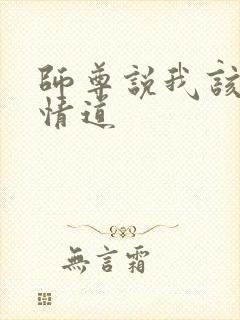 師尊說我該
情道
無言霜